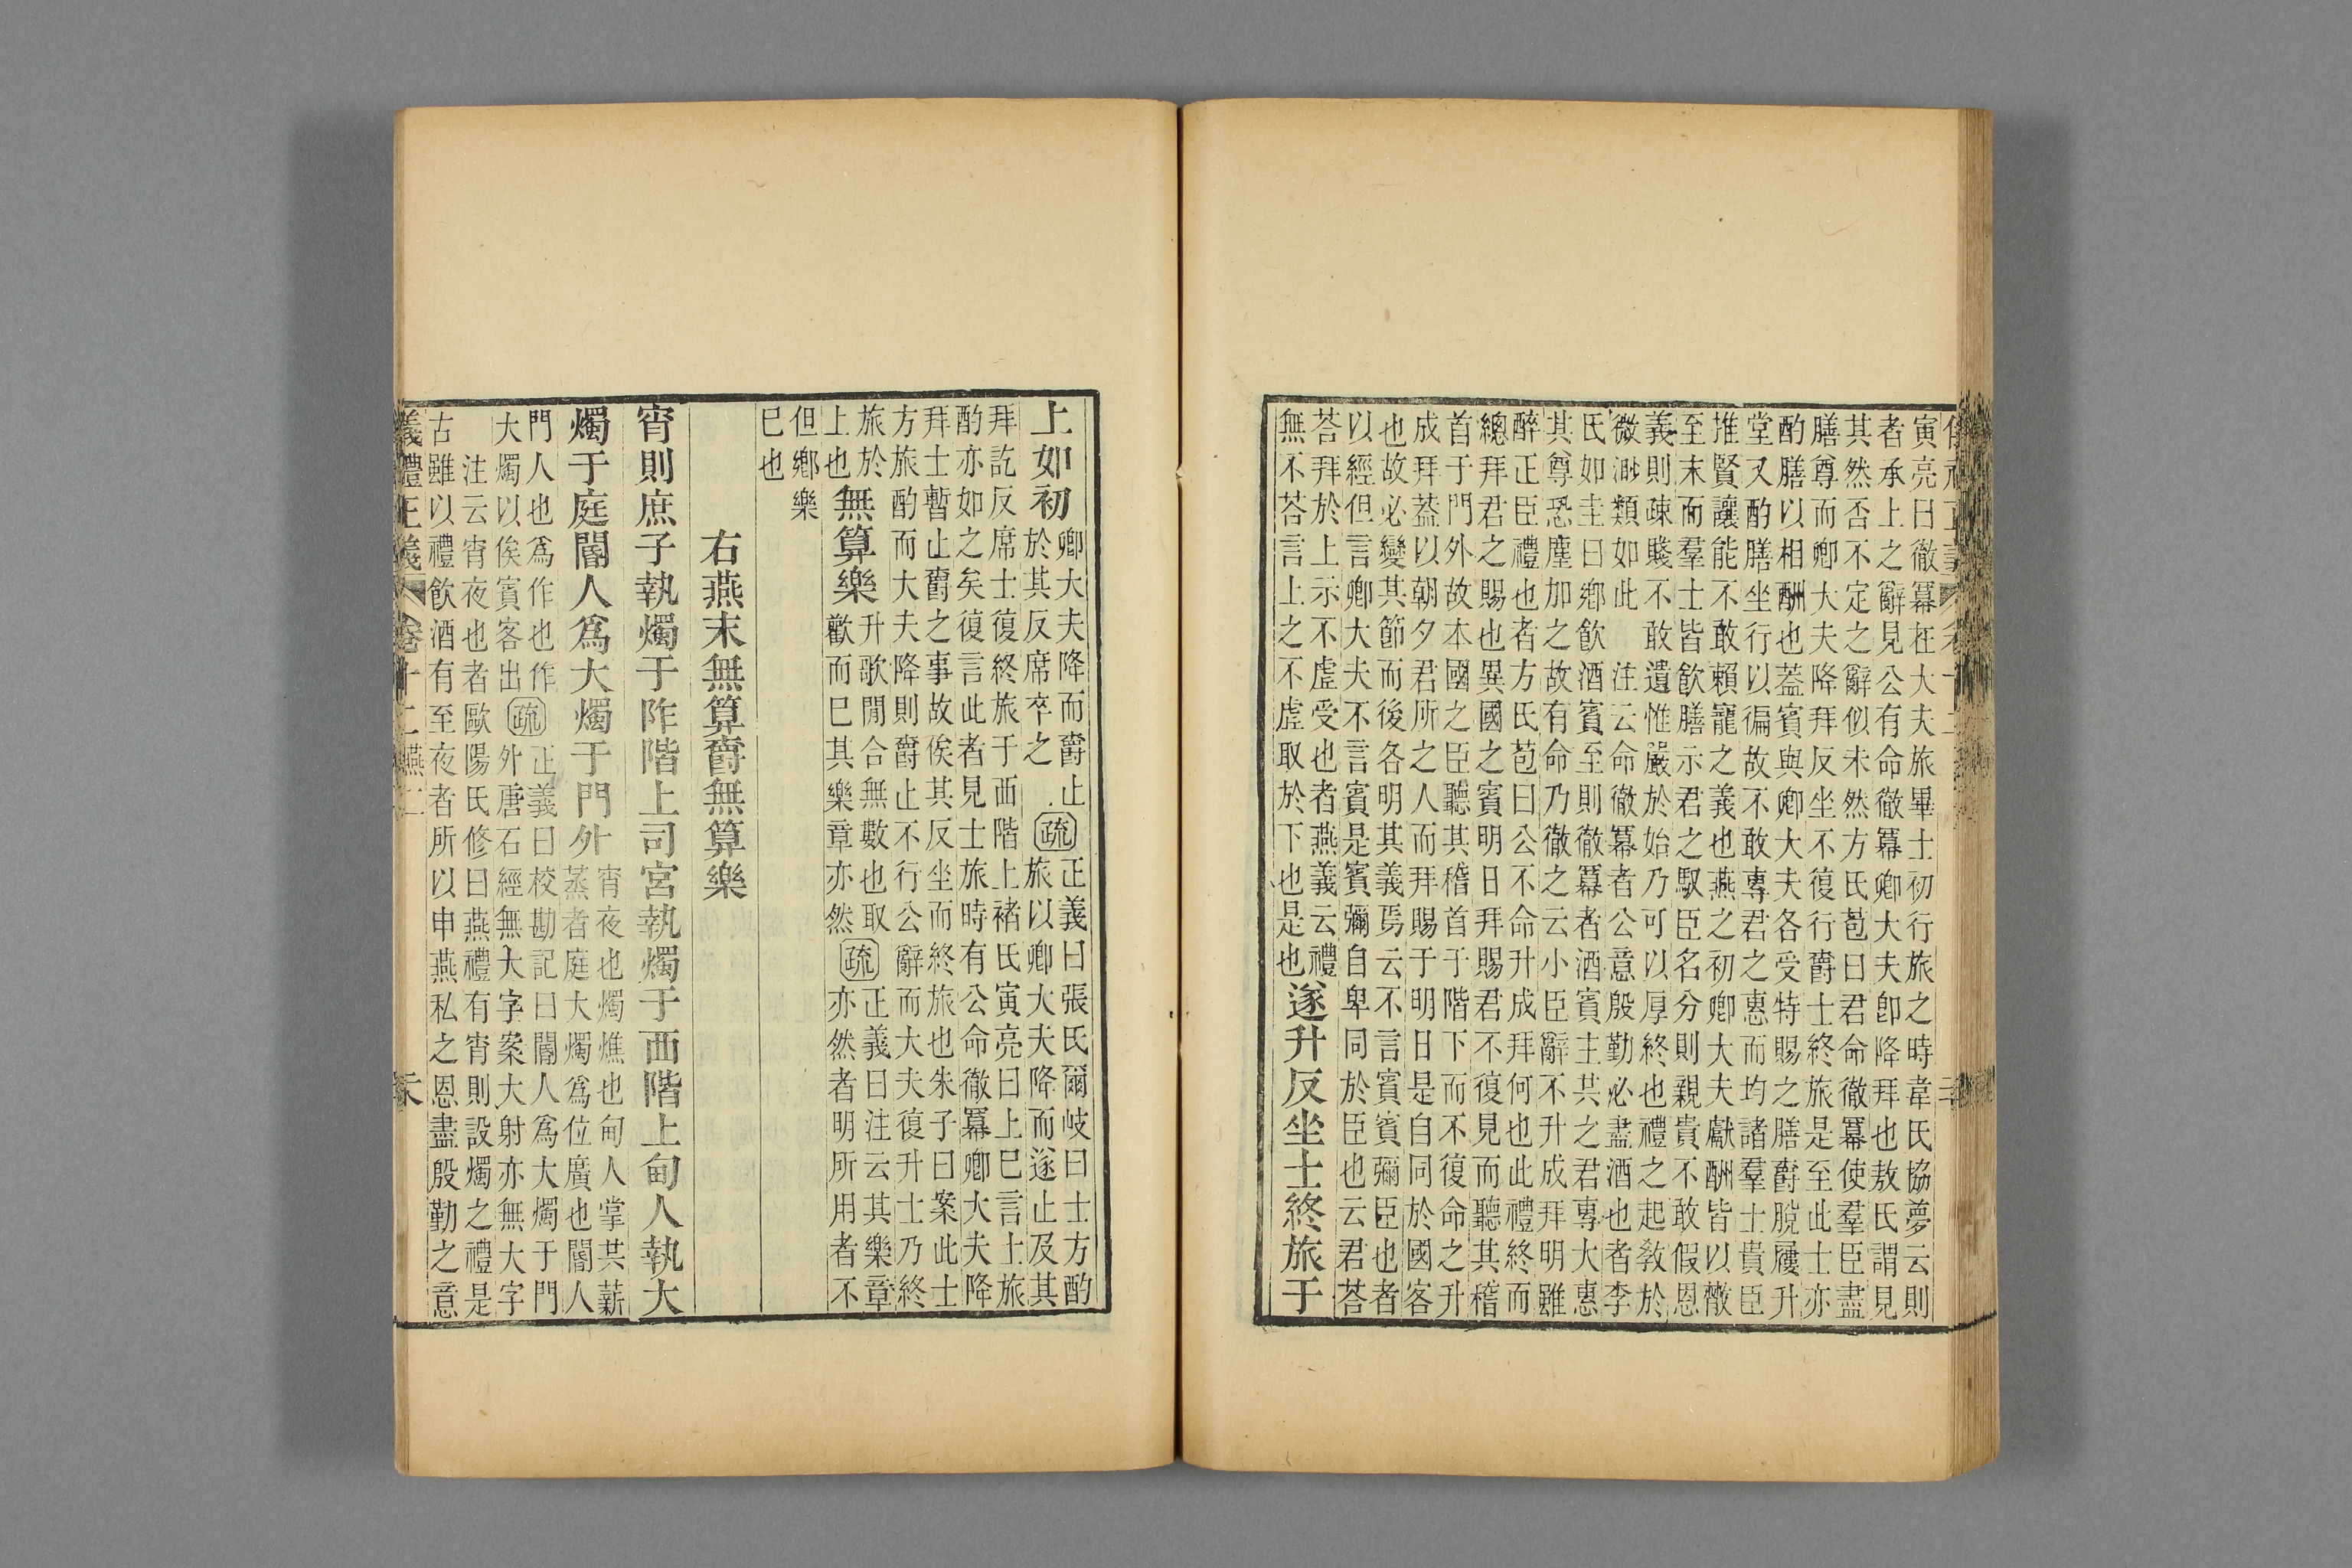 寅亮曰徹冪在大夫旅畢士初行旅之時韋氏協夢云則
者承上之辭見公有命徹冪卿大夫卽降拜也敖氏謂見
其然否不定之辭似未然方氏苞曰君命徹冪使羣臣盡
膳尊而卿大夫降拜反坐不復行爵士終旅是至此士亦
酌膳以相酬也蓋賓與卿大夫各受特賜之膳爵脫屨升
堂又酌膳坐行以徧故不敢專君之惠而均諸羣士貴臣
推賢讓能不敢賴寵之義也燕之初卿大夫獻酬皆以㪚
至末而羣士皆飲膳示君之馭臣名分則親貴不敢假恩
義則疎賤不敢遺惟嚴於始乃可以厚終也禮之起敎於
微渺類如此 注云命徹冪者公意殷勤必盡酒也者李
氏如圭曰鄉飲酒賓至則徹冪者酒賓主共之君專大惠
其尊恐塵加之故有命乃徹之云小臣辭不升成拜明雖
醉正臣禮也者方氏苞曰公不命升成拜何也此禮終而
總拜君之賜也異國之賓明日拜賜君不復見而聽其稽
首于門外故本國之臣聽其稽首于階下而不復命之升
成拜蓋以朝夕君所之人而拜賜于明日是自同於國客
也故必變其節而後各明其義焉云不言賓賓彌臣也者
以經但言卿大夫不言賓是賓彌自卑同於臣也云君荅
荅拜於上示不虛受也者燕義云禮
無不荅言上之不虛取於下也是也
遂升反坐士終旅于
上如初
卿大夫降而爵止
於其反席卒之
疏
正義曰張氏爾岐曰士方酌
旅以卿大夫降而遂止及其
拜訖反席士復終旅于西階上褚氏寅亮曰上巳言士旅
酌亦如之矣復言此者見士旅時有公命徹冪卿大夫降
拜士暫止爵之事故俟其反坐而終旅也朱子曰案此士
方旅酌而大夫降則爵止不行公辭而大夫復升士乃終
旅於
上也
無算樂
升歌閒合無數也取
歡而巳其樂章亦然
疏
正義曰注云其樂章
亦然者明所用者不
但鄉樂
巳也
右燕末無算爵無算樂
宵則庶子執燭于阼階上司宮執燭于西階上甸人執大
燭于庭閽人爲大燭于門外
宵夜也燭燋也甸人掌共薪
蒸者庭大燭爲位廣也閽人
門人也爲作也作
大燭以俟賓客出
疏
正義曰校勘記曰閽人爲大燭于門
外唐石經無大字案大射亦無大字
注云宵夜也者歐陽氏修曰燕禮有宵則設燭之禮是
古雖以禮飲酒有至夜者所以申燕私之恩盡殷勤之意
義禮正義 卷十二 燕二